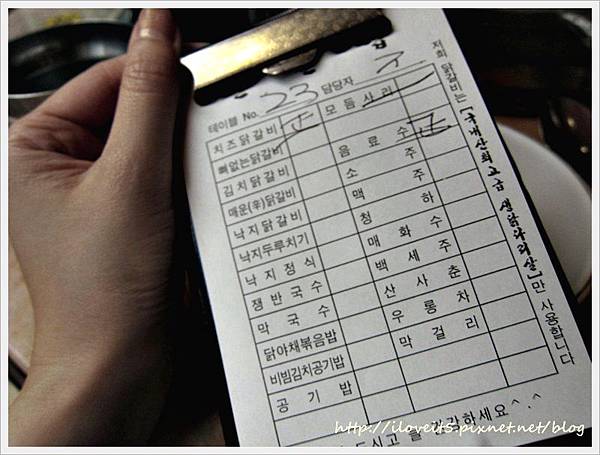 테이블 No. 23 담당자
치즈닭갈비 正 모듬사리
뼈없는닭갈비 음료수
김치닭갈비 소주
매운(辛)닭갈비 맥주
낙지닭갈비 청하
낙지두루치기 매화수
낙지정식 백세주
쟁반국수 산사춘
막국수 우롱차
닭야채볶음밥 막걸리
비빔김치공기밥
공기밥
저희 닭갈비는 "국내산최고급 생닭다리살"만 사용합니다
하세요^.^
http://iloveit5.pixnet.net/blog